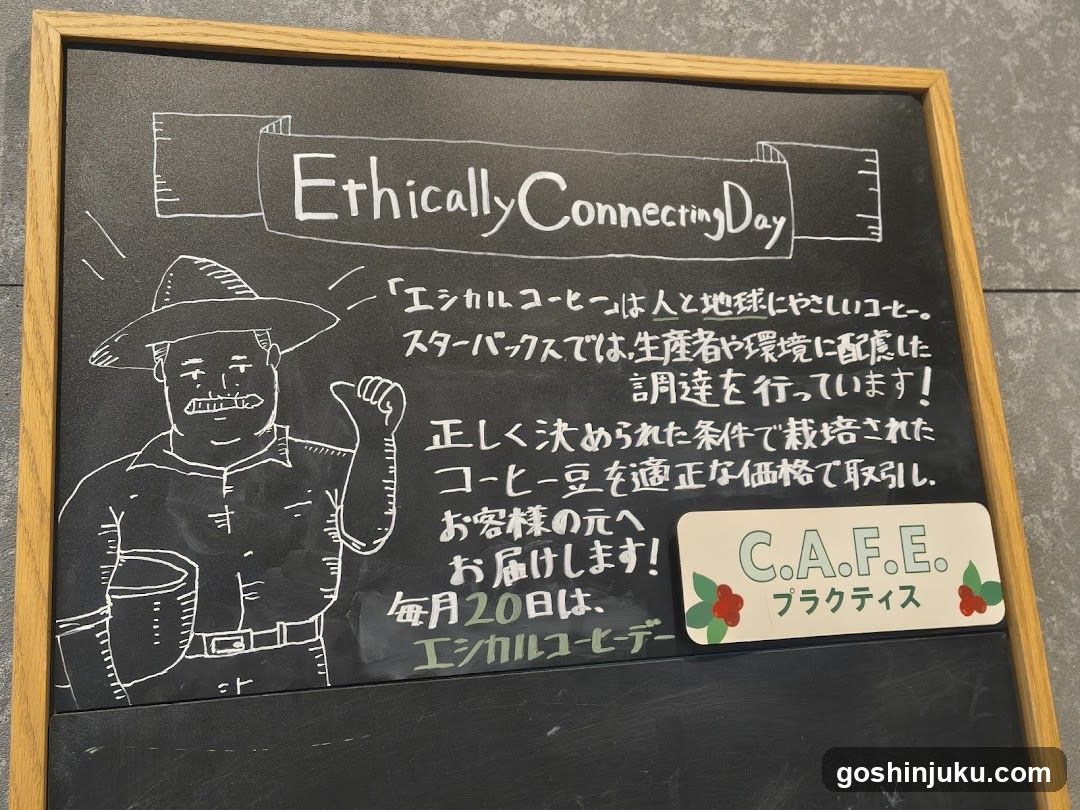 Ethically Connecting Day
「エシカルコーヒー」は人と地球にやさしいコーヒー。
スターバックスでは、生産者や環境に配慮した
調達を行っています!
正しく決められた条件で栽培された
コーヒー豆を適正な価格で取引し、
お客様の元へ
お届けします!
毎月20日は、
エシカルコーヒーデー
C.A.F.E.
プラクティス
goshinjuku.com